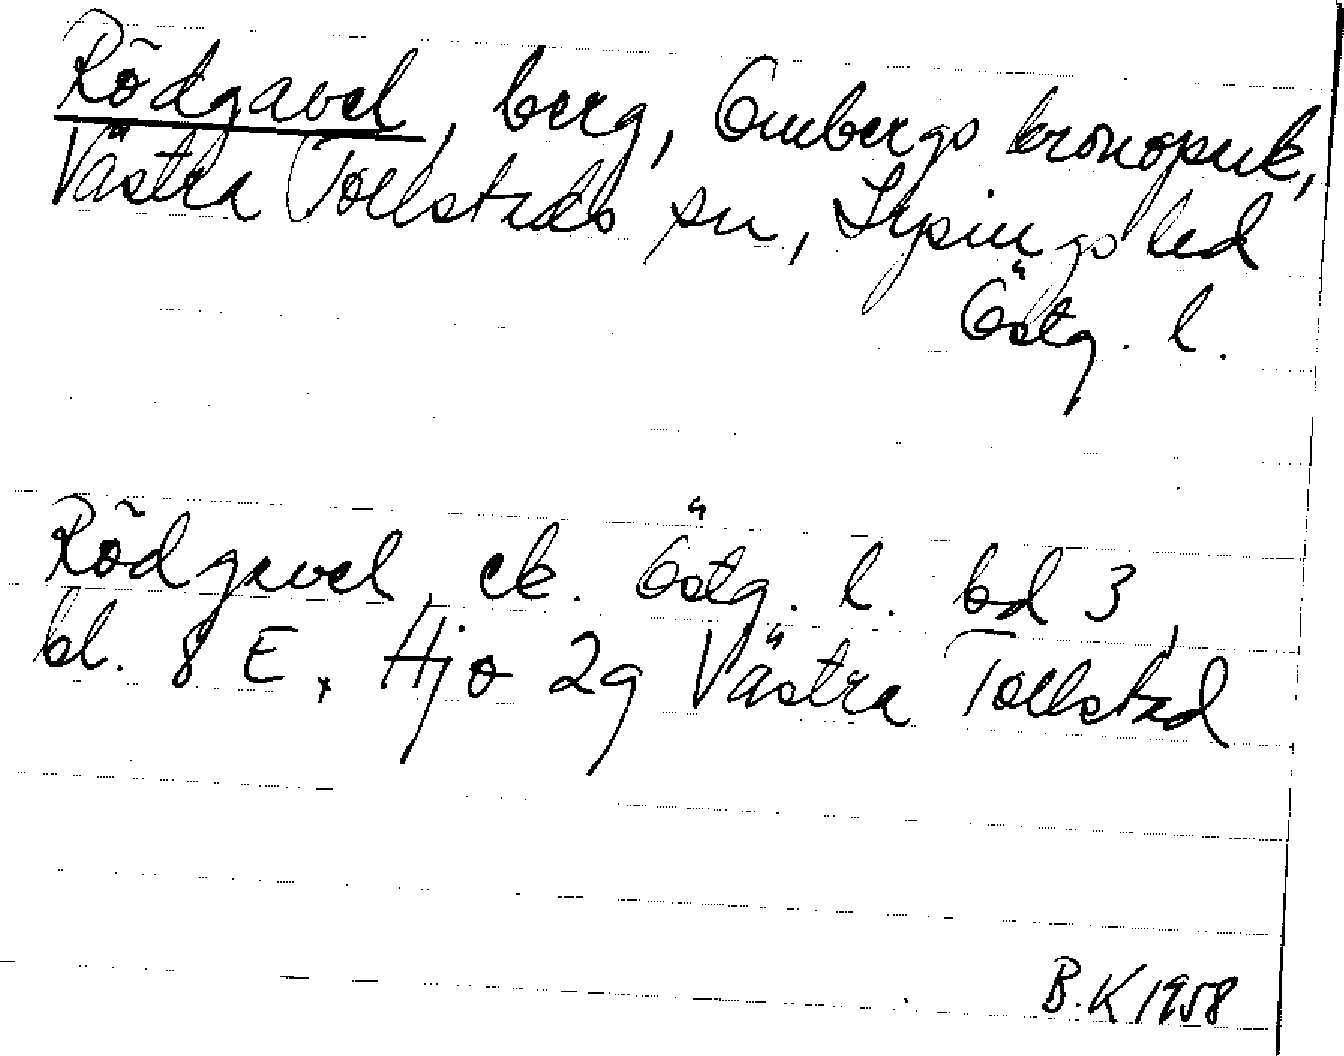 Rödgavel, berg, Ombergs kronopark,
Västra Tollstads sn, Lysings hd
Östg. l.
Rödgavel, ek. Östg. l. bd 3,
bl. 8 E, Hjo 2g Västra Tollstad
B.K 1958